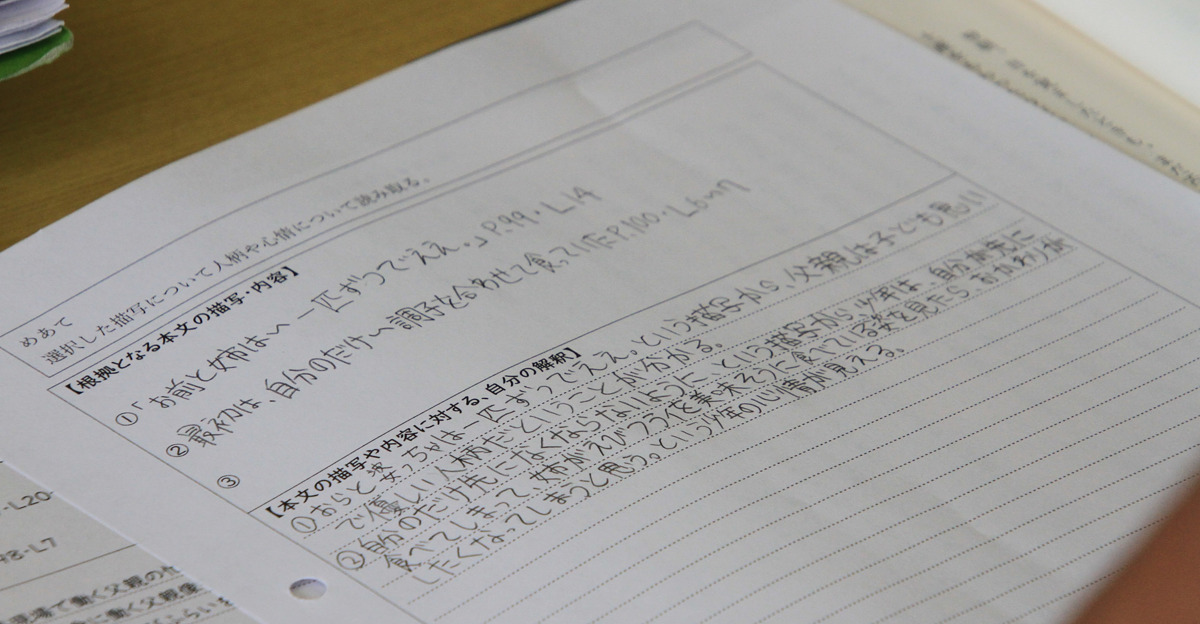 めあて
選択した描写について人柄や心情について読み取る。
【根拠となる本文の描写・内容】
①「お前と姉は〜一匹ずつでええ。」P.99・L14
②最初は、自分のだけ〜調子を合わせて食っていたP.100・L6〜7
③
【本文の描写や内容に対する、自分の解釈】
①おらと 姉っちゃは一匹ずつでええ。という描写から、父親は子ども思い
で優しい人柄だということが分かる。
②自分のだけ先になくならないように、という描写から少年は、自分が先に
食べてしまって、姉がえびフライを美味そうに食べている姿を見たら おかわり
したくなってしまうと思う。という少年の心情が見える。
L20-
98-L7
現場で働く父親の
に働く父親